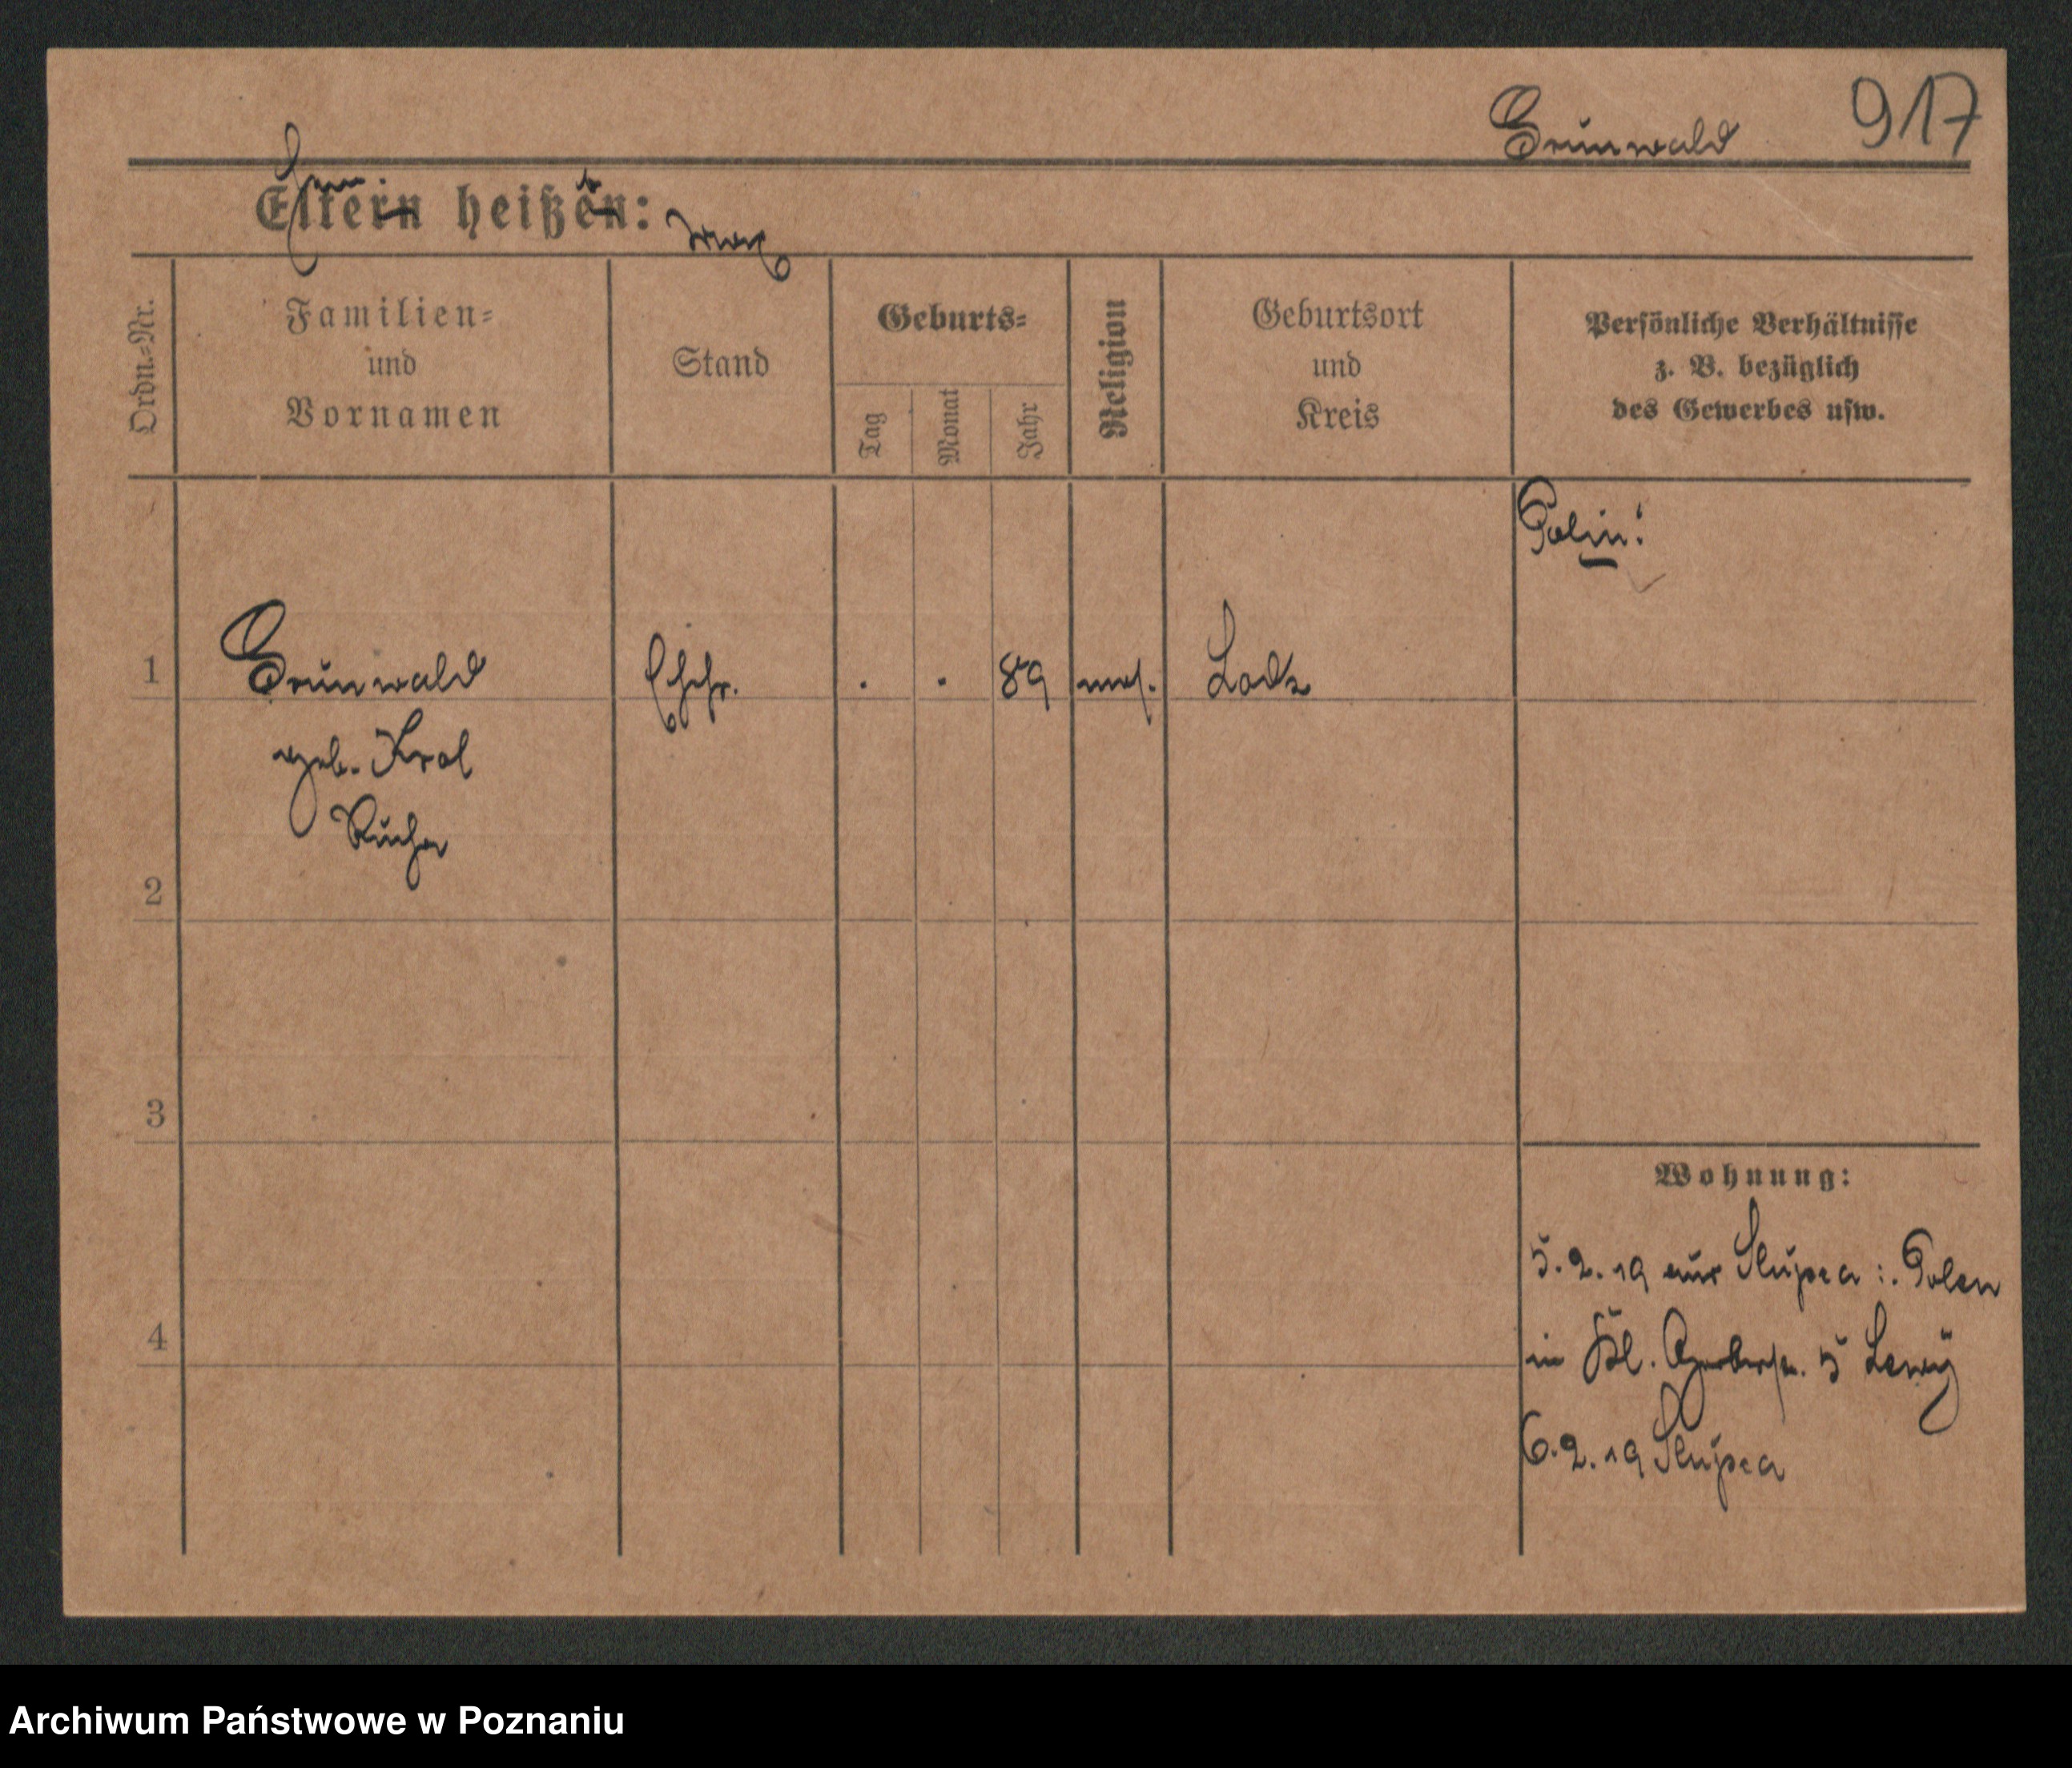 Grünwald 917
Eltern heißen:
Ordn.-Nr.
Familien-
und
Vornamen
Stand
Geburts-
Tag
Monat
Jahr
Religion
Geburtsort
und
Kreis
Persönliche Verhältnisse
z. B. bezüglich
des Gewerbes usw.
Polin!
1 Grünwald Ehfr. . . 89 mos. Lodz
geb. Krol
Rucha
2
3
4
Wohnung:
5.2.19 aus Slupca :. Polen
in Kl. Gerberstr. 5 Lewy
6.2.19 Slupca
Archiwum Państwowe w Poznaniu